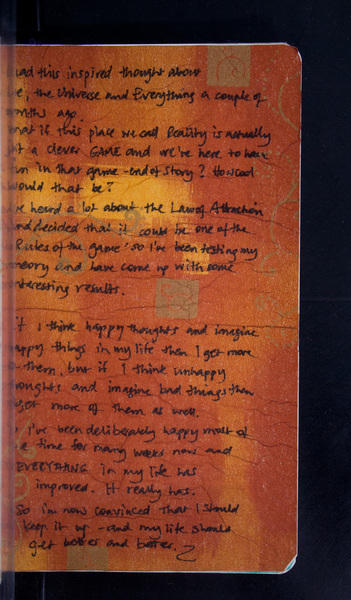 had this inspired thought about
the Universe and Everything a couple of
months ago.
What if this place we call Reality is actually
a clever GAME and we're here to have
fun in that game - end of story? How cool
would that be?
I've heard a lot about the Law of Attraction
and decided that it could be one of the
'Rules of the game' so I've been testing my
theory and have come up with some
interesting results.
if I think happy thoughts and imagine
happy things in my life then I get more
of them, but if I think unhappy
thoughts and imagine bad things then
I get more of them as well.
I've been deliberately happy most of
the time for many weeks now and
EVERYTHING in my life has
improved. It really has.
So i'm now convinced that I should
keep it up - and my life should
get better and better.